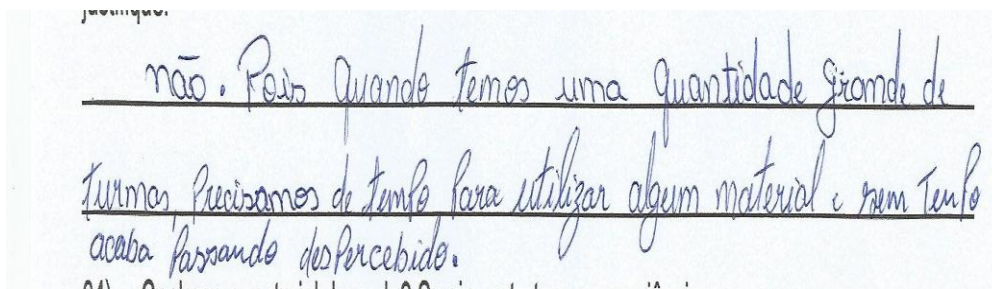 justifique.
não. Pois Quando temos uma quantidade grande de
turmas, Precisamos de tempo para utilizar algum material e sem tempo
acaba passando despercebido.